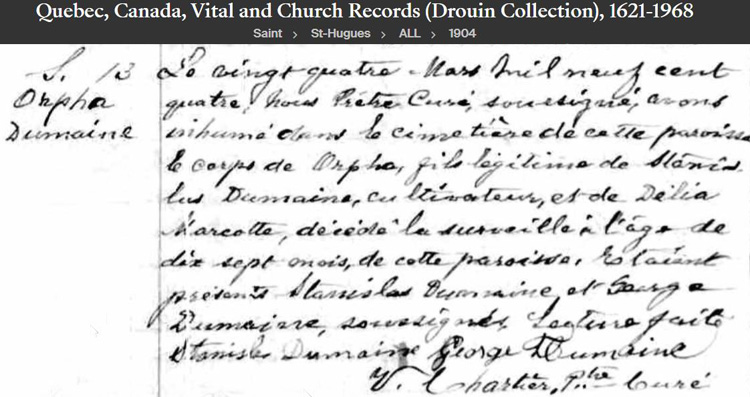 Quebec, Canada, Vital and Church Records (Drouin Collection), 1621-1968
Saint > St-Hugues > ALL > 1904
S. 13
Orpha
Dumaine
Le vingt quatre Mars mil neuf cent
quatre, Nous Prêtre Curé, sousigné, avons
inhumé dans le cimetière de cette paroisse
le corps de Orpha, fils légitime de Stanis-
las Dumaine, cultivateur, et de Délia
Marcotte, décédé la surveille à l'âge de
dix sept mois, de cette paroisse. Etaient
présents Stanislas Dumaine et George
Dumaine, sousignés. Lecture faite
Stanislas Dumaine George Dumaine
V. Chartier, Ptre Curé